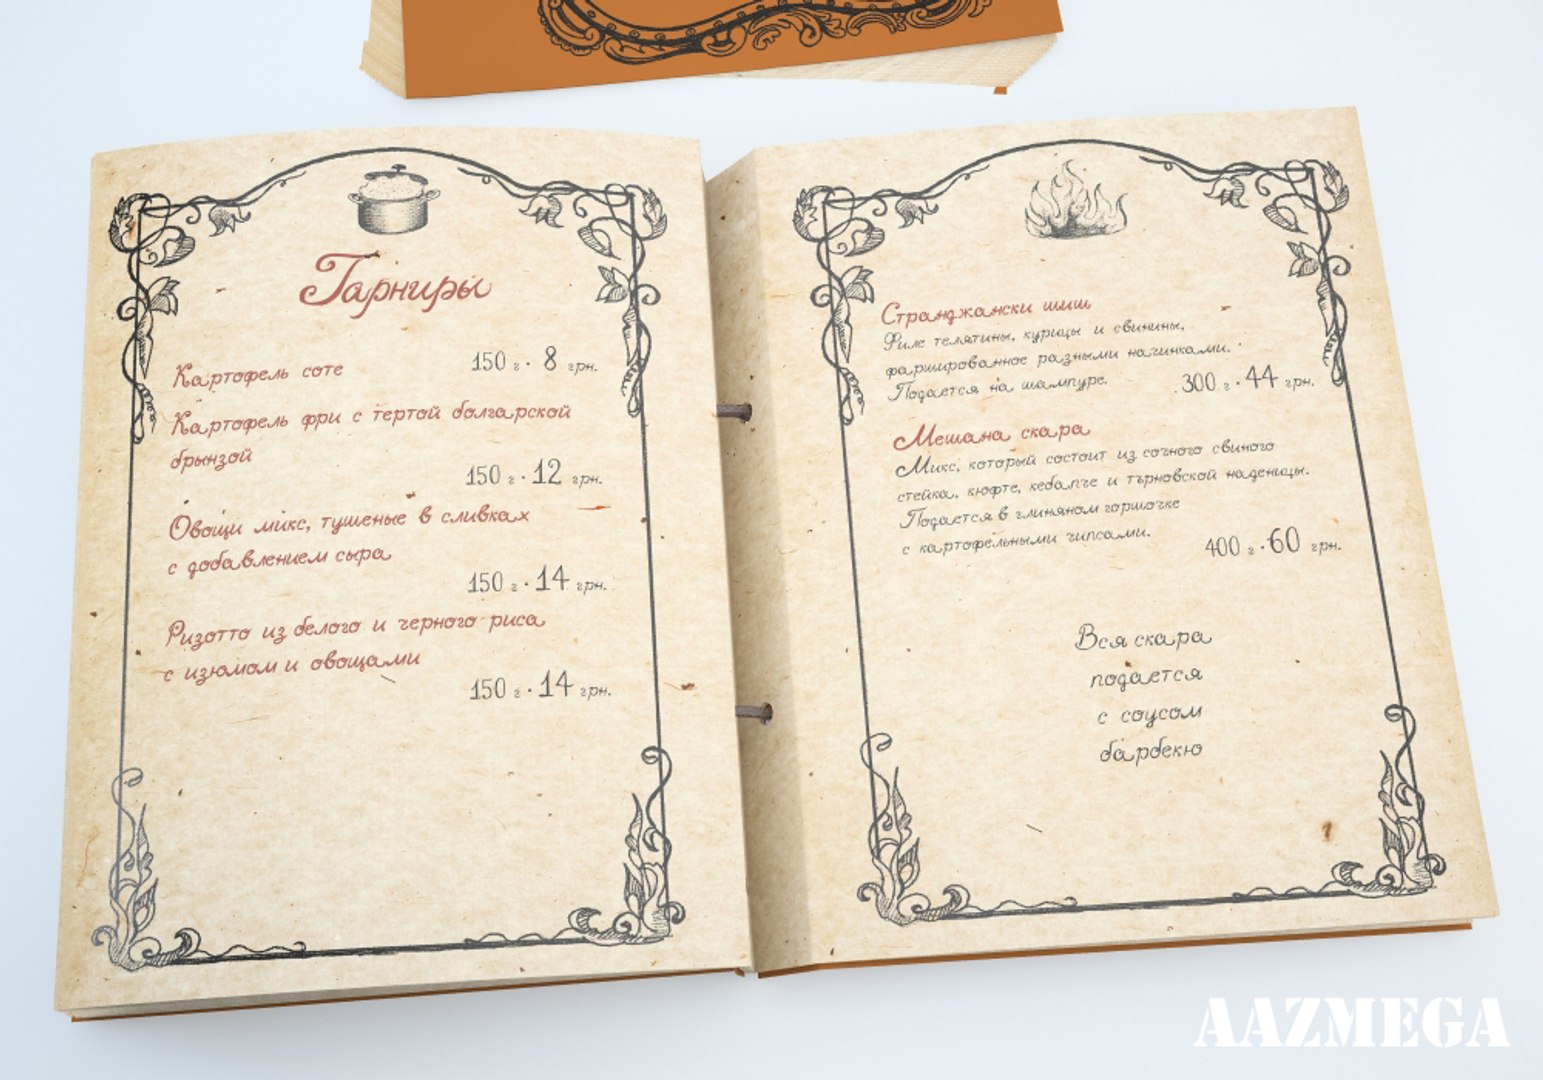 Гарниры
Картофель соте
150 г · 8 грн.
Картофель фри с тертой болгарской
брынзой
150 г · 12 грн.
Овощи микс, тушеные в сливках
с добавлением сыра
150 г · 14 грн.
Ризотто из белого и черного риса
с изюмом и овощами
150 г · 14 грн.
Странджански шиш
Филе телятины, курицы и свинины,
фаршированное разными начинками.
Подается на шампуре.
300 г · 44 грн.
Мешана скара
Микс, который состоит из сочного свиного
стейка, кюфте, кебапче и търновской наденицы.
Подается в глиняном горшочке
с картофельными чипсами.
400 г · 60 грн.
Вся скара
подается
с соусом
барбекю
AAZMEGA